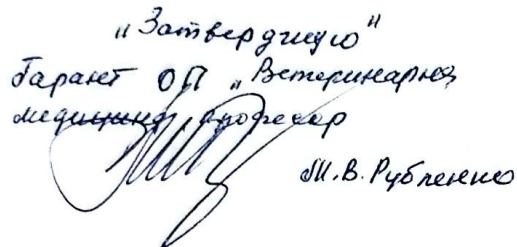 "Затверджую"
Гарант ОП "Ветеринарна
медицина, професор
М.В. Рубленко